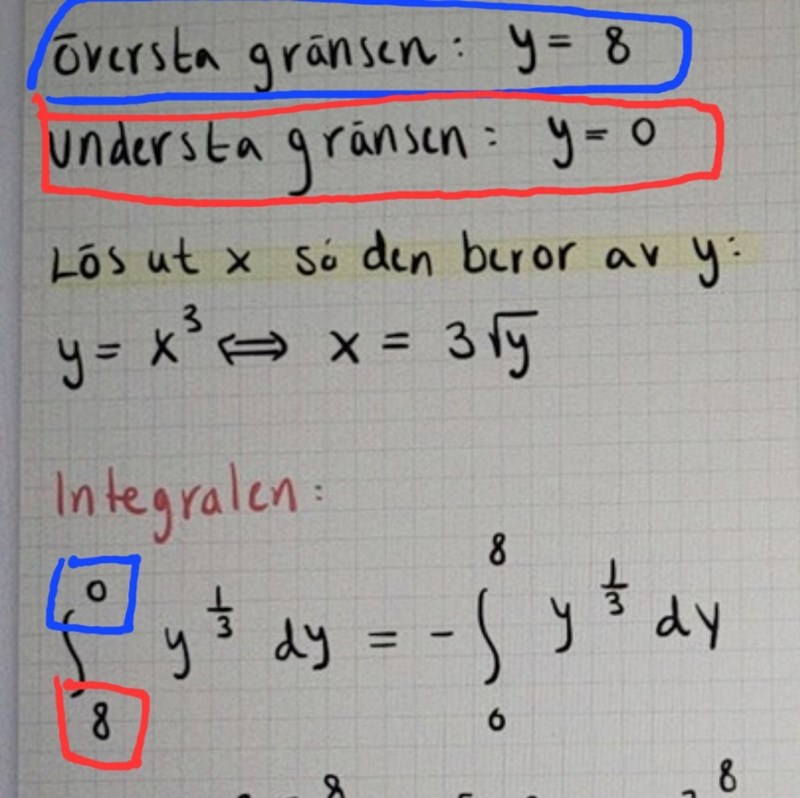 Översta gränsen: y = 8
Understa gränsen: y = 0
Lös ut x så den beror av y:
y = x³ ⟺ x = 3√y
Integralen:
∫₈⁰ y^(1/3) dy = - ∫₀⁸ y^(1/3) dy